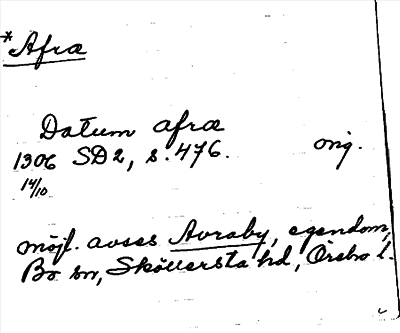 *Afræ
Datum afræ
1306 SD2, s. 476. orig.
14/10
möjl. avses Avraby, egendom,
Bo sn, Sköllersta hd, Örebro l.